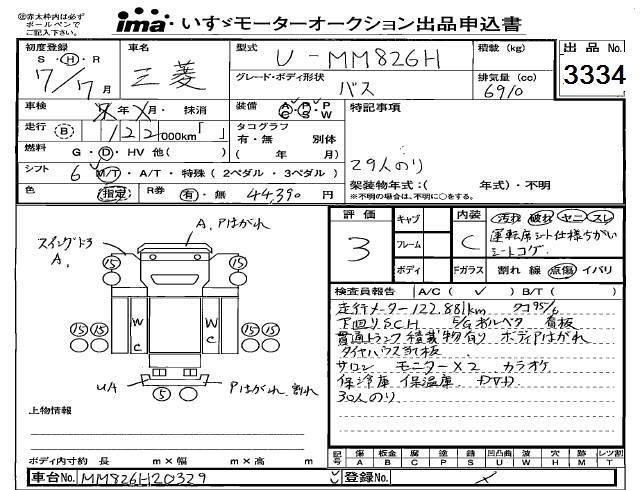 ㊟赤太枠内は必ず
ボールペンで
ご記入下さい。
ima いすゞモーターオークション出品申込書
初度登録
S・H・R
7/7月
車名
三菱
型式
U-MM826H
積載 (kg)
出品No.
3334
グレード・ボディ形状
バス
排気量 (cc)
6910
車検
年 月・ 抹消
装備 A/C P/S P/W
特記事項
29人のり
走行 B 122,000km「 」
タコグラフ
有・無 別体
( 年 月)
燃料 G・D・HV 他( )
シフト 6 M/T・A/T・特殊(2ペダル・3ペダル)
架装物年式:( 年式)・不明
※不明の場合は、不明に○をする。
色 指定 R券 有・無 44,390 円
評価
3
キャブ
フレーム
ボディ
内装
C
汚れ 破れ ヤニ スレ
運転席シート仕様ちがい
シートコゲ
Fガラス 割れ 線 点傷 イバリ
A、Pはがれ
スイングドア
A、
15 15
15 15 15 15
W C W C
UA
5
Pはがれ、割れ
検査員報告 A/C( ✓ ) B/T( )
走行メーター122.881km
下回りSCH E/Gオルベタ 看板
貫通トランク積載物有り ボディPはがれ
タイヤハウス当て板
サロン モニター×2 カラオケ
保冷庫 保温庫 DVD
30人のり
上物情報
ボディ内寸約 長 m×幅 m×高 m
記号
傷 板金 腐 塗 錆 凹凸曲 波 穴 跡 レツ割
A B C P S U W H M T
車台No. MM826H20329
登録No.